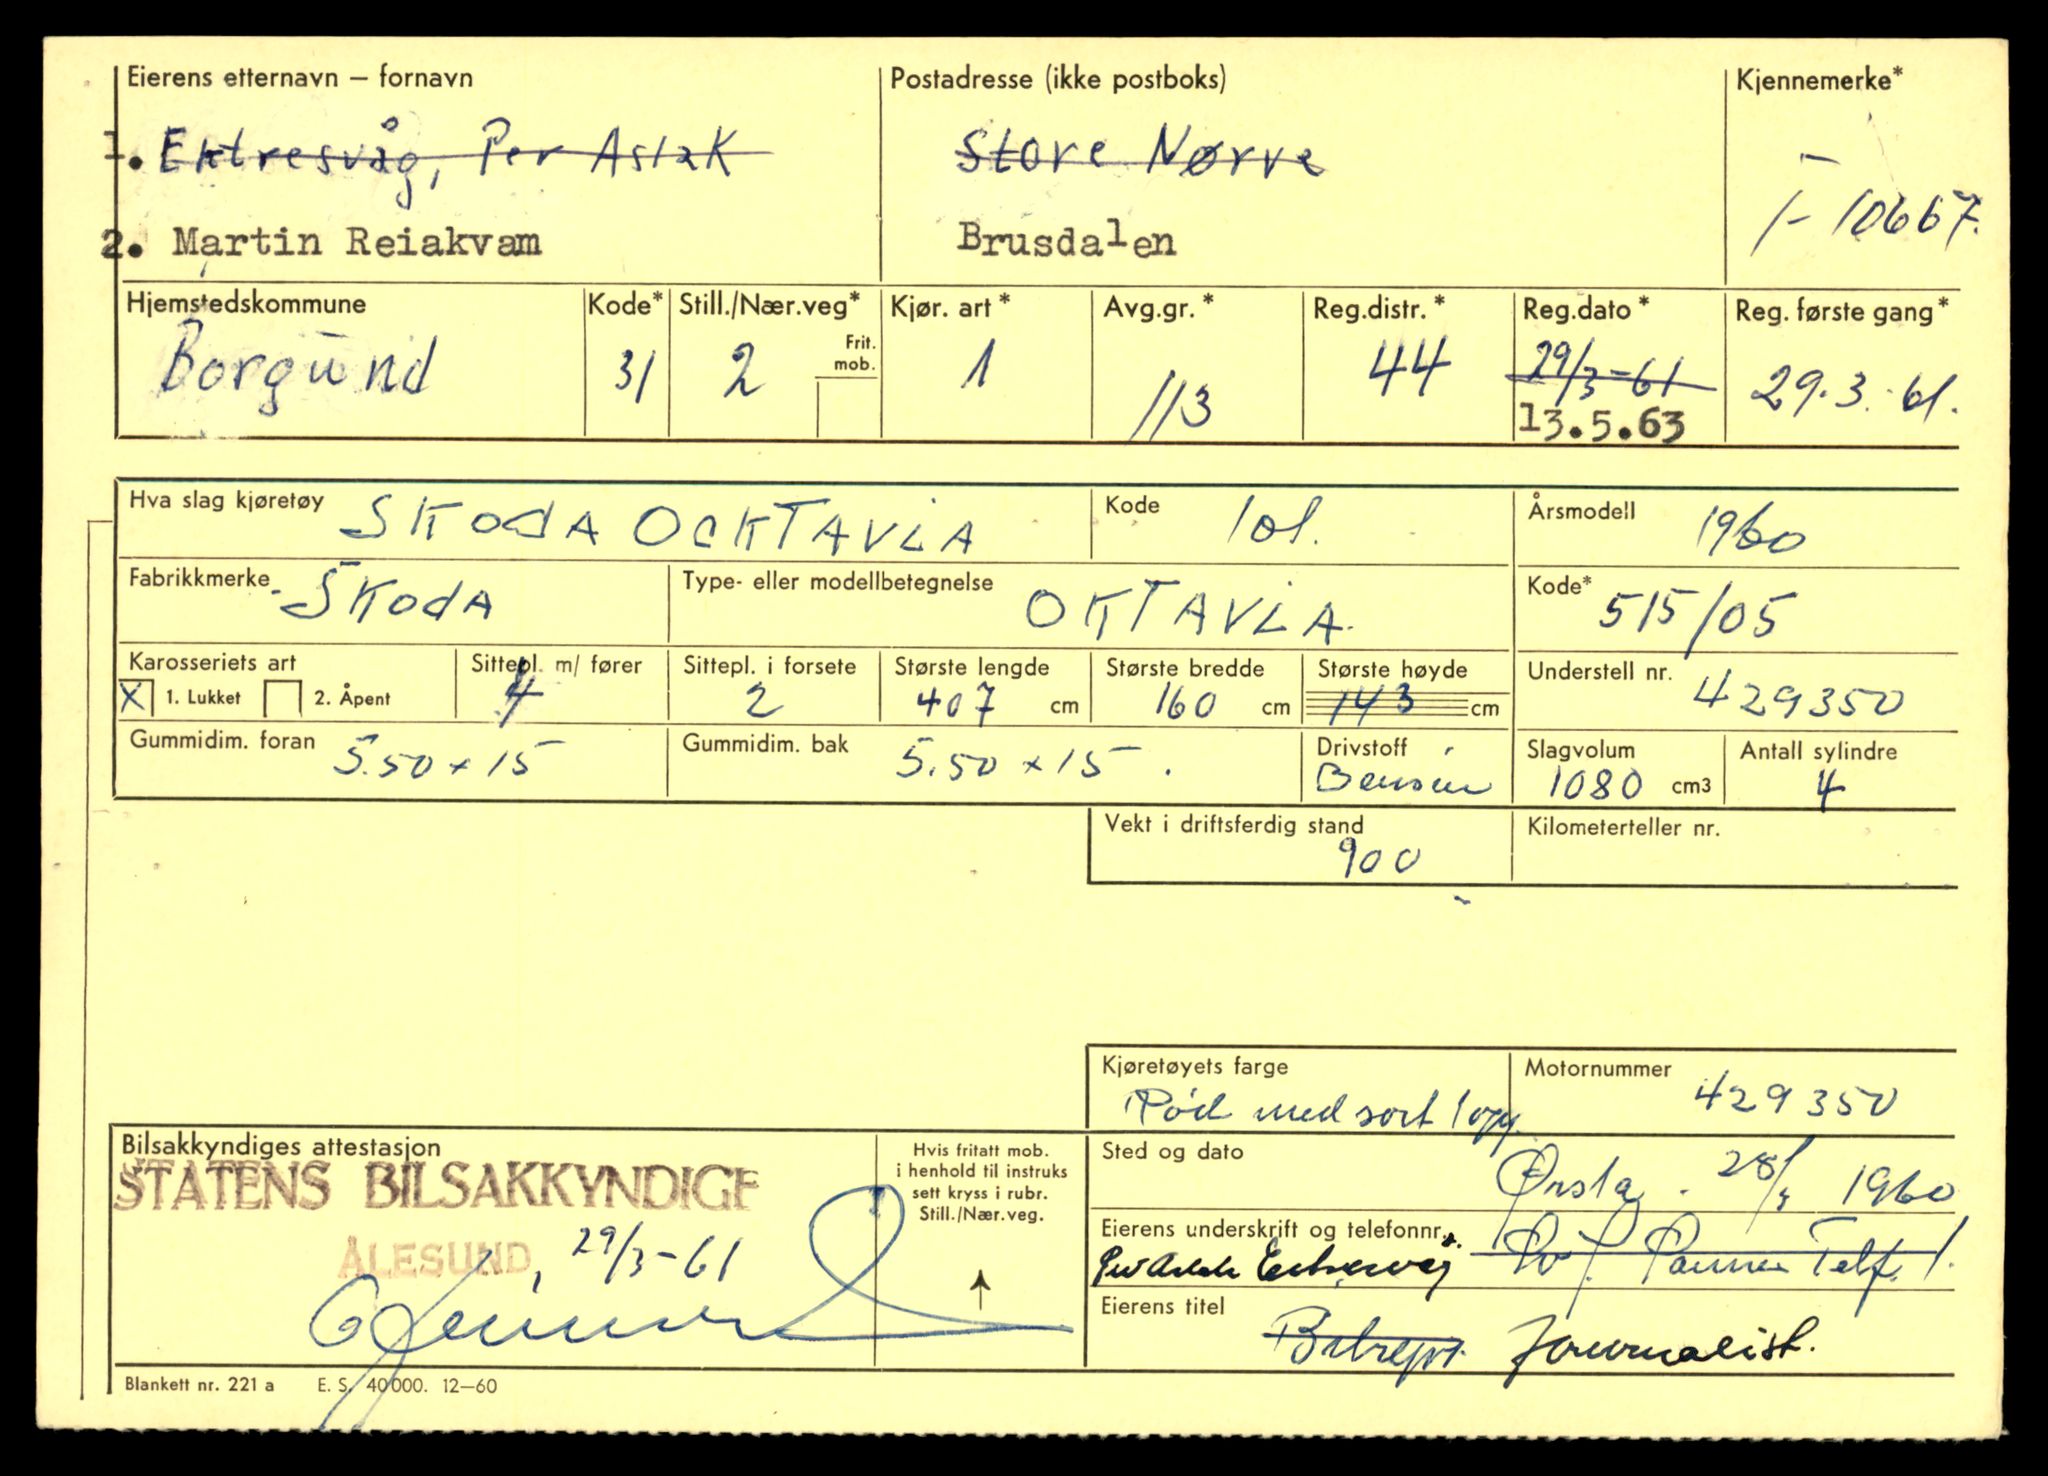 Eierens etternavn – fornavn
Postadresse (ikke postboks)
Kjennemerke*
1. Ektresvåg, Per Aslak
Store Nørve
T- 10667.
2. Martin Reiakvam
Brusdalen
Hjemstedskommune
Kode*
Still./Nær.veg*
Kjør. art*
Avg.gr.*
Reg.distr.*
Reg.dato*
Reg. første gang*
Frit. mob.
Borgund
31
2
1
113
44
29/3-61
29.3.61.
13.5.63
Hva slag kjøretøy
SKODA OCKTAVIA
Kode
101.
Årsmodell
1960
Fabrikkmerke
SKODA
Type- eller modellbetegnelse
OKTAVIA.
Kode*
515/05
Karosseriets art
Sittepl. m/ fører
Sittepl. i forsete
Største lengde
Største bredde
Største høyde
Understell nr.
X 1. Lukket
2. Åpent
4
2
407 cm
160 cm
143 cm
429350
Gummidim. foran
5.50 x 15
Gummidim. bak
5.50 x 15.
Drivstoff
Bensin
Slagvolum
1080 cm3
Antall sylindre
4
Vekt i driftsferdig stand
900
Kilometerteller nr.
Kjøretøyets farge
Rød med sort
Motornummer
429350
Bilsakkyndiges attestasjon
STATENS BILSAKKYNDIGE
ÅLESUND, 29/3-61
Hvis fritatt mob.
i henhold til instruks
sett kryss i rubr.
Still./Nær.veg.
Sted og dato
Ørsta. 1960
Eierens underskrift og telefonnr.
Telf. 1.
Eierens titel
Journalist.
Blankett nr. 221 a
E. S. 40000. 12–60